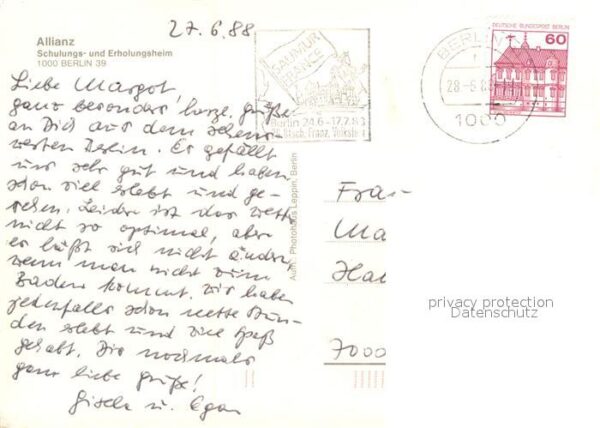 27.6.88
Allianz
Schulungs- und Erholungsheim
1000 BERLIN 39
Liebe Margot,
ganz besonders herzl. Grüße
an Dich aus dem sehens-
werten Berlin. Es gefällt
uns sehr gut und haben
schon viel erlebt und ge-
sehen. Leider ist das Wetter
nicht so optimal, aber
es läßt sich nicht ändern
wenn man nicht zum
Baden kommt. Wir haben
jedenfalls schon nette Stun-
den erlebt und viel Spaß
gehabt. Dir nochmals
ganz liebe Grüße!
Gisela u. Egon
SALÜ MUR
FRANCE
Berlin 24.6.-17.7.83
Dtsch. Franz. Volksfest
DEUTSCHE BUNDESPOST BERLIN
60
BERLIN
28-6.8
1000
Aufn.: Photohaus Leppin, Berlin
Frau
Ma
Ha
7000
privacy protection
Datenschutz